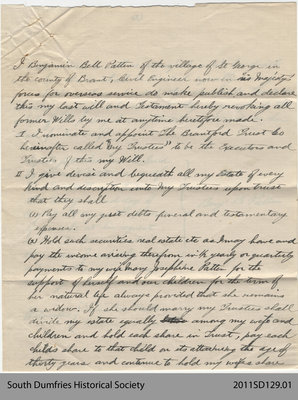 I Benjamin Bell Patten of the village of St George in
the county of Brant, Civil Engineer now in his Majesty's
forces for overseas service do make publish and declare
this my last will and Testament hereby revoking all
former Wills by me at anytime heretofore made.
I I nominate and appoint The Brantford Trust Co
hereinafter called "My Trustees" to be the Executors and
Trustees of this my Will.
II I give devise and bequeath all my Estate of every
kind and description unto My Trustees upon trust
that they shall
(a) Pay all my just debts funeral and testamentary
expenses.
(b) Hold such securities real estate etc as I may have and
pay the income arising therefrom in ½ yearly or quarterly
payments to my wife Mary Josephine Patten for the
support of herself and our children for the term of
her natural life always provided that she remains
a widow. If she should marry my Trustees shall
divide my estate equally among my wife and
children and hold each share in Trust, pay each
child's share to that child on its attaining the age of
thirty years and continue to hold my wife's share
South Dumfries Historical Society 2011SD129.01